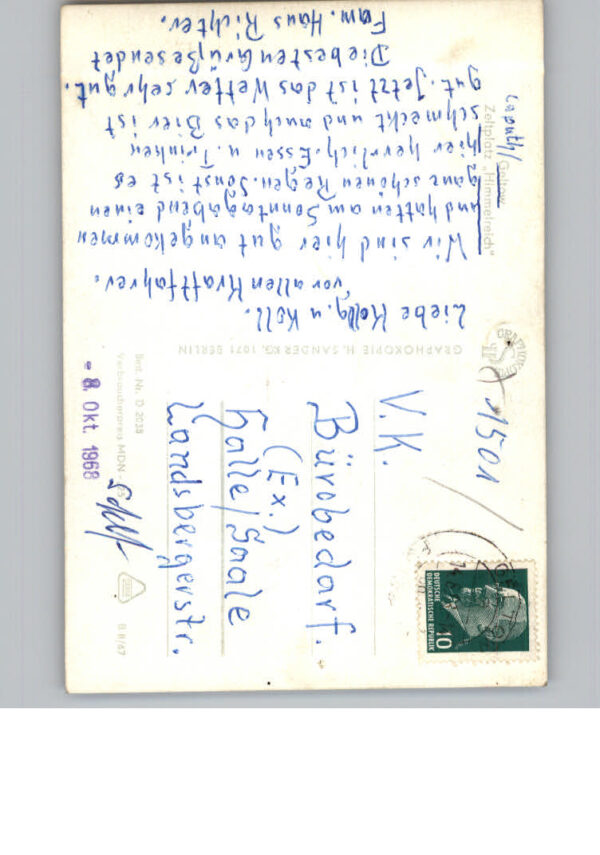 Liebe Kollg. u Koll.
vor allen Kraftfahrer.
Wir sind hier gut angekommen
und hatten am Sonntagabend einen
ganz schönen Regen. Sonst ist es
hier herrlich. Essen u. Trinken
schmeckt und auch das Bier ist
gut. Jetzt ist das Wetter sehr gut.
Die besten Grüße sendet
Fam. Hans Richter.
Caputh/Geltow
Zeltplatz „Himmelreich"
GRAPHOKOPIE H. SANDER KG. 1071 BERLIN
1501
V.K.
Bürobedarf.
(Ex.)
Halle/Saale
Landsbergerstr.
DEUTSCHE
DEMOKRATISCHE REPUBLIK
10
Best. Nr. D 2039
Verbraucherpreis MDN
- 8. Okt. 1968
B 8/67